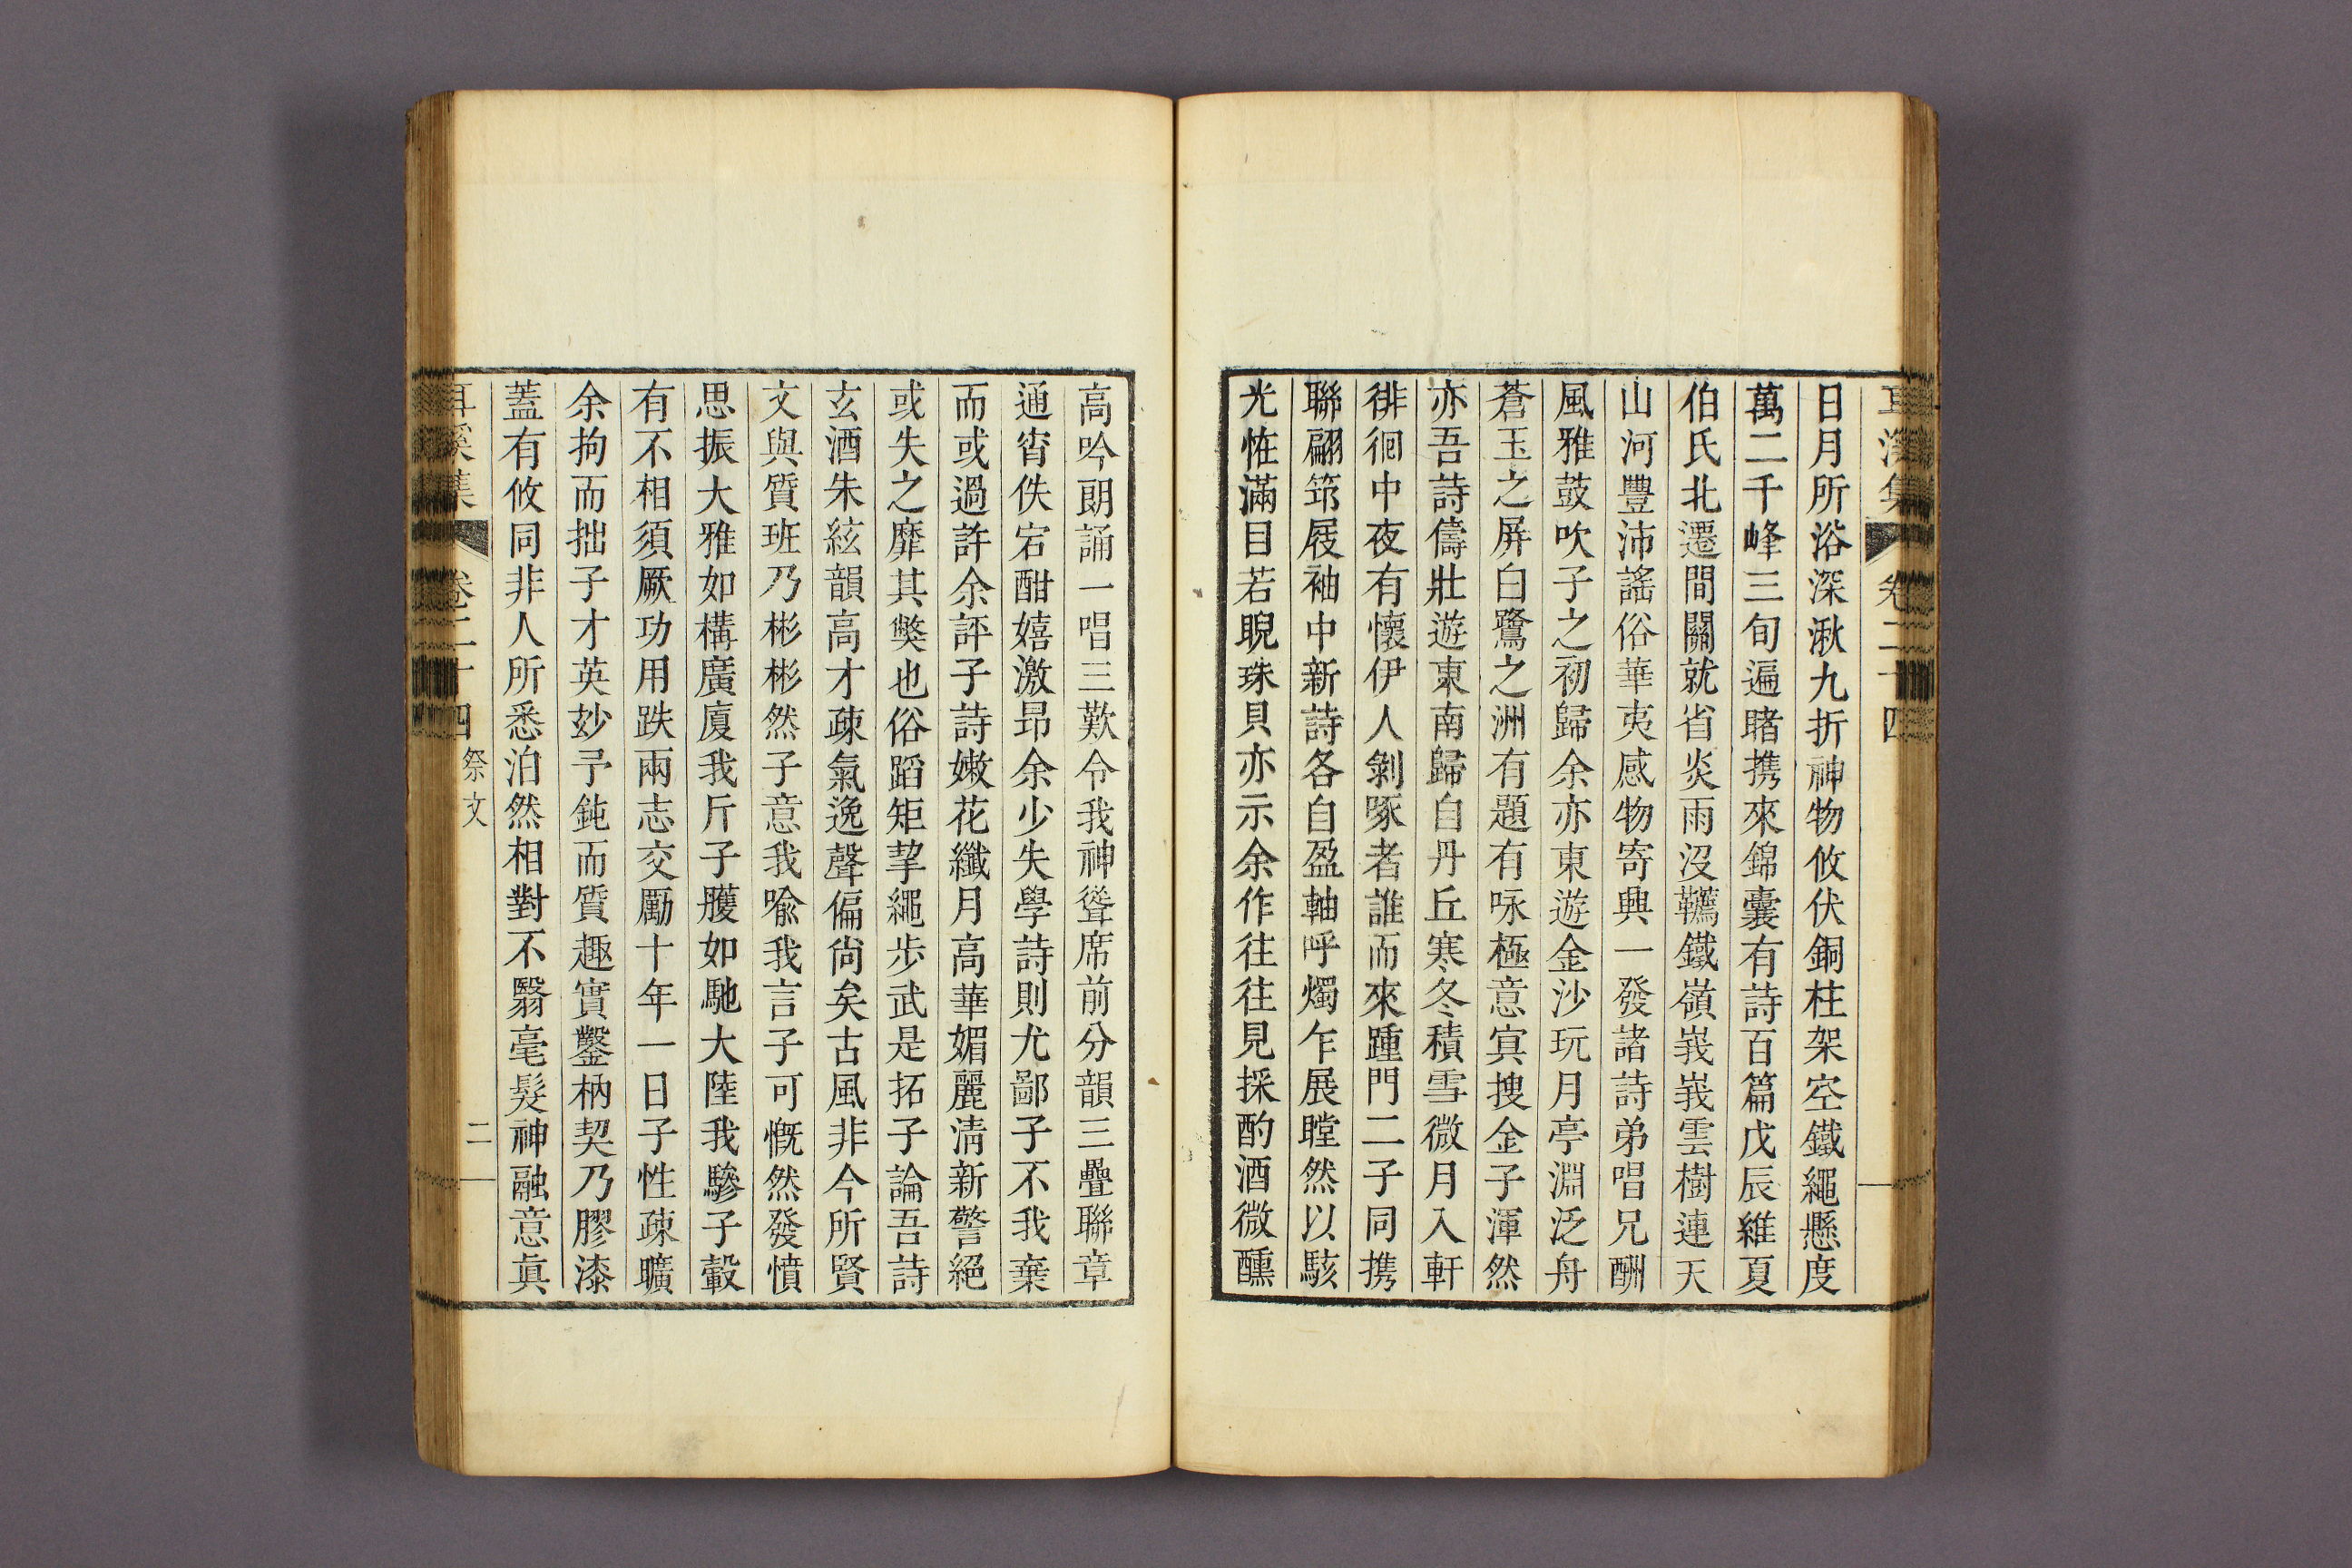 耳溪集 卷二十四
日月所浴深湫九折神物攸伏銅柱架空鐵繩懸度
萬二千峰三旬遍睹携來錦囊有詩百篇戊辰維夏
伯氏北遷間關就省炎雨沒韉鐵嶺峩峩雲樹連天
山河豐沛謠俗華夷感物寄興一發諸詩弟唱兄酬
風雅鼓吹子之初歸余亦東遊金沙玩月亭淵泛舟
蒼玉之屏白鷺之洲有題有咏極意冥搜金子渾然
亦吾詩儔壯遊東南歸自丹丘寒冬積雪微月入軒
徘徊中夜有懷伊人剝啄者誰而來踵門二子同携
聯翩筇屐袖中新詩各自盈軸呼燭乍展瞠然以駭
光恠滿目若睨珠貝亦示余作往往見採酌酒微醺
高吟朗誦一唱三歎令我神聳席前分韻三疊聯章
通宵佚宕酣嬉激昂余少失學詩則尤鄙子不我棄
而或過許余評子詩嫩花纖月高華媚麗淸新警絕
或失之靡其獘也俗蹈矩挈繩步武是拓子論吾詩
玄酒朱絃韻高才疎氣逸聲偏尙矣古風非今所賢
文與質班乃彬彬然子意我喩我言子可慨然發憤
思振大雅如構廣廈我斤子雘如馳大陸我驂子轂
有不相須厥功用跌兩志交勵十年一日子性疎曠
余拘而拙子才英妙予鈍而質趣實鑿枘契乃膠漆
蓋有攸同非人所悉泊然相對不翳毫髮神融意眞
耳溪集 卷二十四 祭文 二